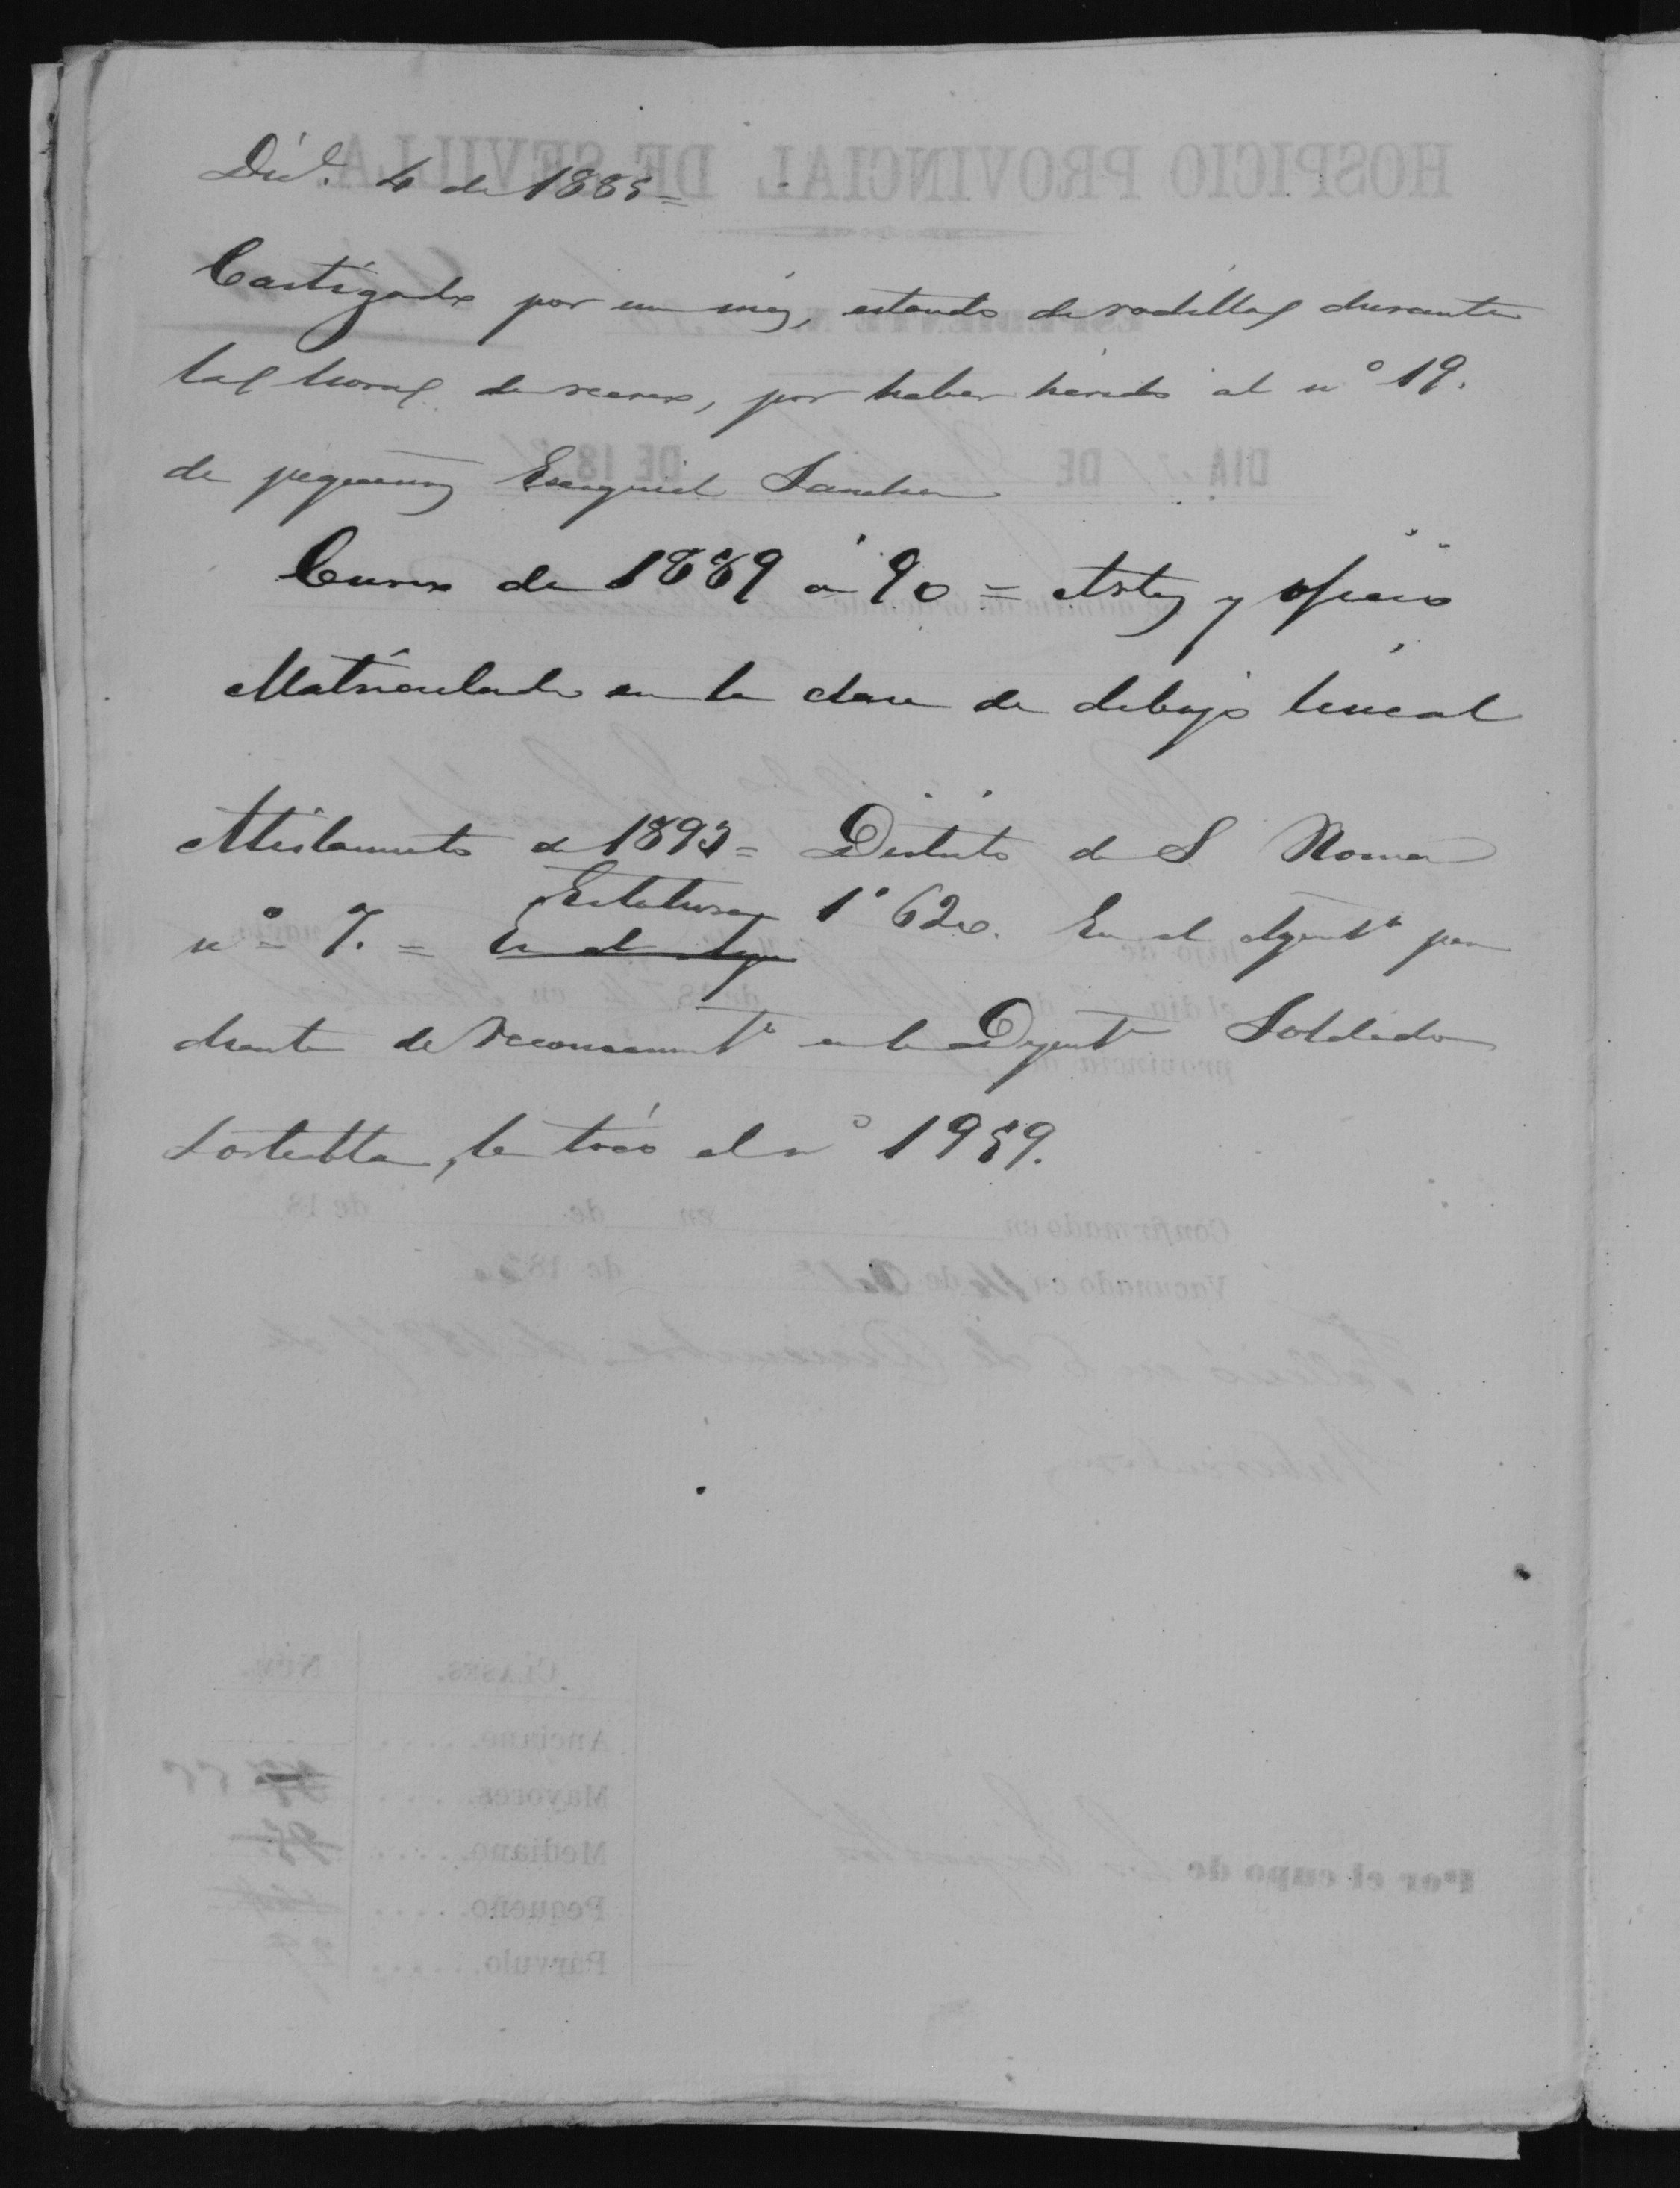 Dic.e 4 de 1885=
Castigado por un més, estando de rodillas durante
las horas de recreo, por haber herido al nº 19.
de pequeños Ezequiel Sanchez
Curso de 1889 á 90 = Artes y oficios
Matriculado en la clase de dibujo lineal
Alistamiento de 1893= Distrito de S Roman
nº 7. = Estatura 1'620. En el Ayunt.to pen
diente de reconocim.to en la Diput.n Soldado
Sorteable, le tocó el nº 1959.